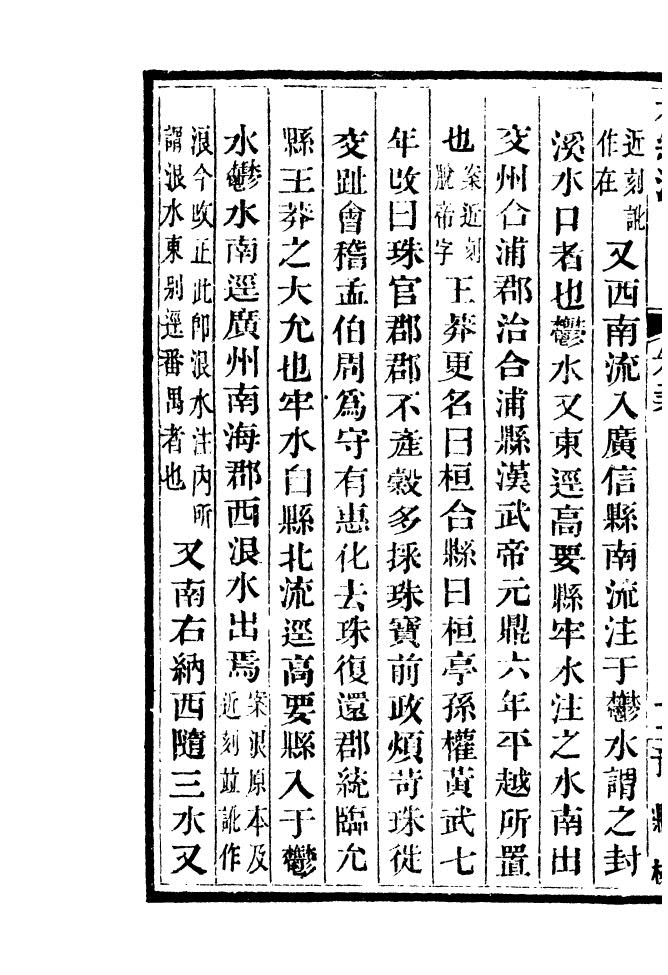 近刻訛作在又西南流入廣信縣南流注于鬱水謂之封
溪水口者也鬱水又東逕高要縣牢水注之水南出
交州合浦郡治合浦縣漢武帝元鼎六年平越所置
也案近刻脫帝字王莽更名曰桓合縣曰桓亭孫權黃武七
年改曰珠官郡郡不產穀多採珠寶前政煩苛珠徙
交趾會稽孟伯周爲守有惠化去珠復還郡統臨允
縣王莽之大允也牢水自縣北流逕高要縣入于鬱
水鬱水南逕廣州南海郡西浪水出焉案浪原本及近刻並訛作
浪今改正此卽浪水注內所謂浪水東別逕番禺者也又南右納西隨三水又